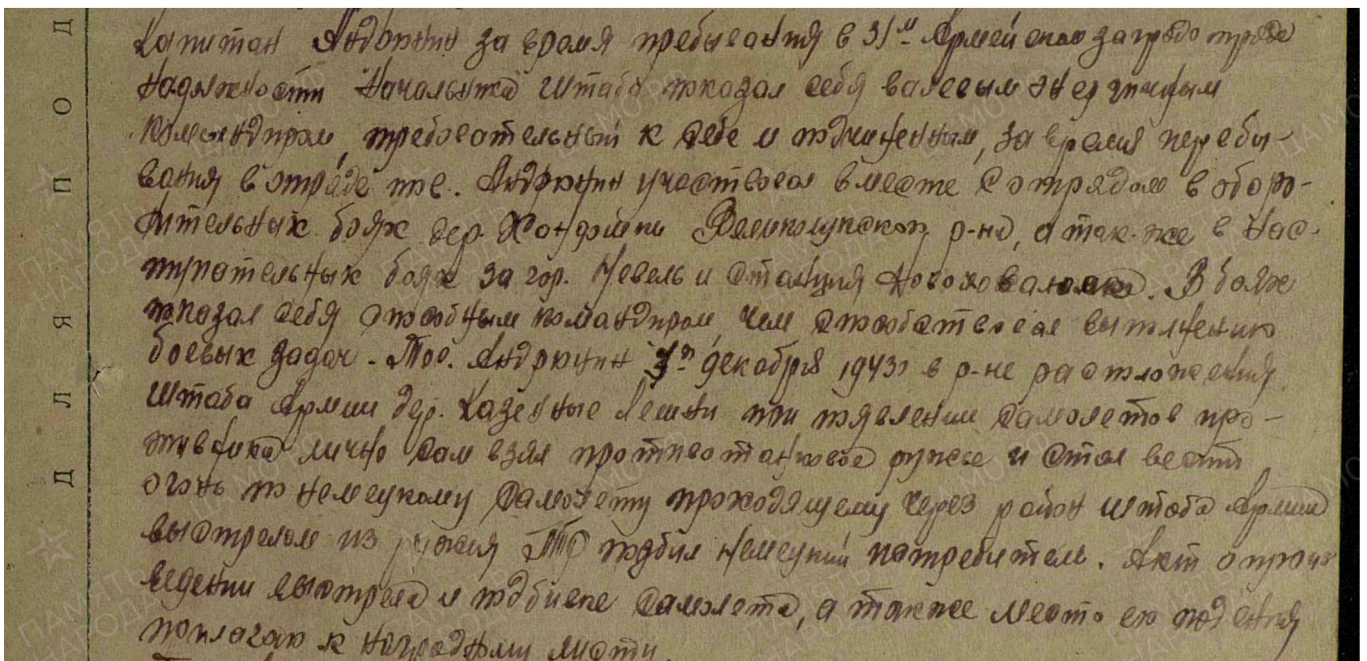 Капитан Андрюнин за время пребывания в 31й Армейском заградотряде
на должности Начальника Штаба показал себя волевым энергичным
командиром, требовательный к себе и подчиненным, за время перебы-
вания в отряде тов. Андрюнин участвовал вместе с отрядом в оборо-
нительных боях дер. Великолукского р-на, а так-же в нас-
тупательных боях за гор. Невель и станция Новохованск. В боях
показал себя способным командиром, чем способствовал выполнению
боевых задач. Тов. Андрюнин декабря 1943 в р-не расположения
Штаба Армии дер. Казенные Лешни при появлении самолетов про-
тивника лично сам взял противотанковое ружье и стал вести
огонь по немецкому самолету проходящему через район штаба Армии
выстрелом из ружья ПТР подбил немецкий истребитель. Акт о произ
ведении выстрела и подбивке самолета, а также место его падения
прилагаю к наградному листу.
ДЛЯ ПОД
ПАМЯТЬ НАРОДА